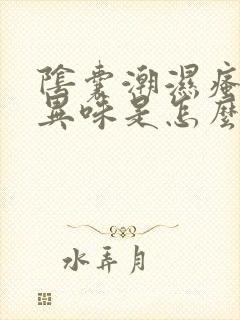 陰囊潮濕瘙
異味是怎麼
水弄月